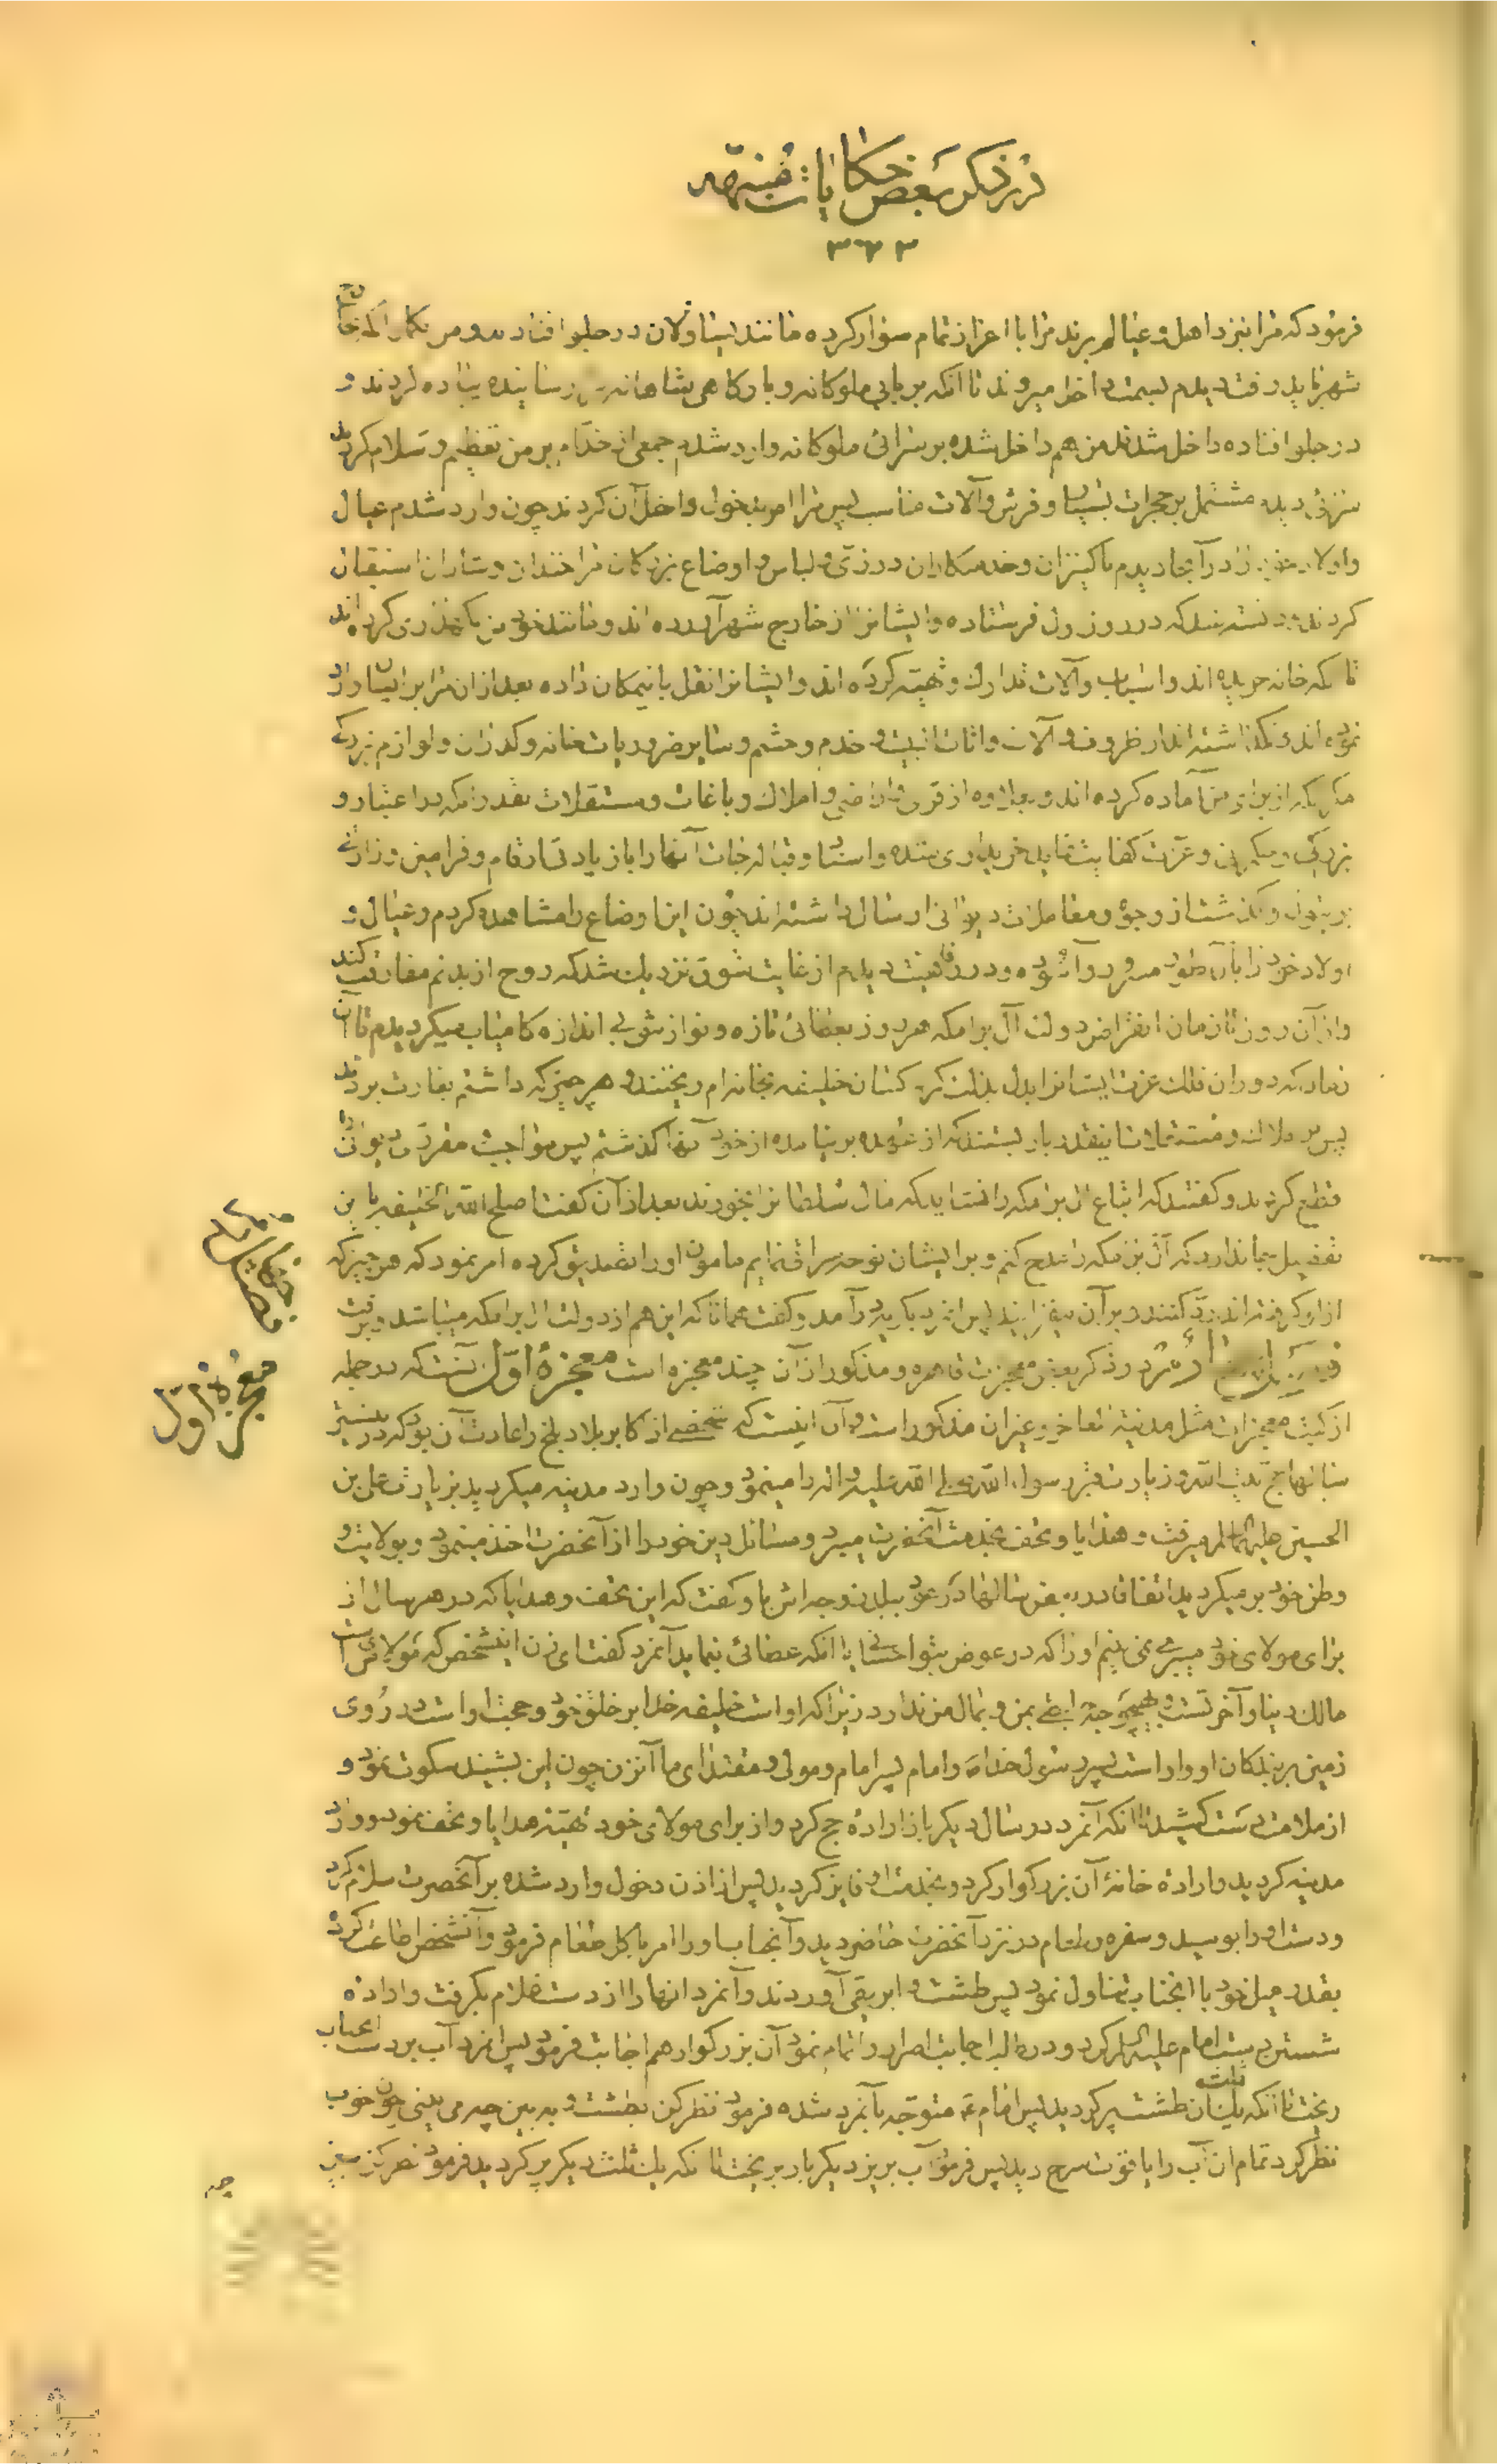 در ذکر بعض حکایات متفرقه
۳۶۳
فرمود که مرا بنزد اهل و عیالم برند مرا با اعزاز تمام سوار کرده مانند یساولان در جلو افتادند و من بکمار
شهر باید رفت دیدم بسمت داخل میروند تا انکه بر بابی ملوکانه و بارکاهی شاهانه رسانیده پیاده کردند و
در جلو افتاده داخل شدند من هم داخل شده بر سرائی ملوکانه وارد شدم جمعی از خدّام بر من تعظیم و سلام کردند
منزلی دیدم مشتمل بر حجرات بسیار و فرش و آلات مناسب پس مرا امر بدخول داخل آن کردند چون وارد شدم عیال
و اولاد خود را در آنجا دیدم با کنیزان و خدمتکاران در زیّ و لباس و اوضاع بزرکان مرا خندان و شادان استقبال
کردند که در روز اول فرستاده و ایشانرا از خارج شهر آورده اند و مانند خود من
تا آنکه خانه خریده اند و اسباب و آلات تدارک و تهیّه کرده اند و ایشانرا نقل بانمکان داده بعد از ان مرا بر ایشان وارد
نموده اند و نکذاشته اند از ظروف و آلات و اثاث البیت و خدم و حشم و سایر ضروریات خانه و کدران و لوازم بزرکی
مکر آنکه از برای من آماده کرده اند و بعلاوه از قری و اراضی و املاک و باغات و مستقلات بقدر آنکه مرا اعتبار و
بزرکی و عزّت کفایت نماید خریداری شده و اسناد و قباله جات آنها را با زیادتی ارقام و فرامین وزارتی
وجوه و معاملات دیوانی ارسال داشته اند چون این اوضاع را مشاهده کردم و عیال و
اولاد خود را بآن طور مسرور و آسوده و در رفاهیت دیدم از غایت شوق نزدیک شد که روح از بدنم مفارقت کند
و از آن روز تا زمان انقراض دولت آل برامکه هر روز بعطائی تازه و نوازشی بی اندازه کامیاب میکردیدم تا آن
زمان که دوران فلک عزت ایشانرا بدل بذلت کرد کسان خلیفه بخانه ام ریختند و هر چیز که داشتم بغارت بردند
پس بر املاک و مستقلات اینقدر بار بستند که از عهده بر نیامده از خود آنها کذشتم پس مواجب مقرری دیوانی را
قطع کردند و کفتند که اتباع آل برامکه را نشاید که مال سلطان را بخورند بعد از آن کفت اصلح الله الخلیفه با این
تفضیل جا ندارد که آل برمکه را مدح کنم و بر ایشان نوحه سرائی نمایم مامون او را تصدیق کرده امر نمود که هر چیز که
از او کرفته اند ردّ کنند و بر آن بیفزایند پس انمرد بکریه در آمد و کفت همانا که این هم از دولت آل برامکه میباشد و برفت
در ذکر بعض معجزات قاهره و مذکور از آن چند معجزه است معجزهٔ اوّل آنست که در جمله
از کتب معجزات مثل مدینة المعاجز و غیر ان مذکور است و آن اینست که شخصی از اکابر بلاد بلخ را عادت آن بود که در بیشتر
سالها حج بیت الله و زیارت قبر رسول الله صلی الله علیه و اله را مینمود و چون وارد مدینه میکردید بزیارت علی بن
الحسین علیهما السلام میرفت و هدایا و تحف بخدمت آنحضرت میبرد و مسائل دین خود را از آنحضرت اخذ مینمود و بولایت و
وطن خود بر میکردید اتفاقا در بعض سالها که عود ببلد نمود زوجه اش باو کفت که این تحف و هدایا که در هر سال از
برای مولای خود میبری نمی بینم او را که در عوض بتو احسانی یا انکه عطائی نماید آنمرد کفت ای زن اینشخص که مولای من است
مالک دنیا و آخرتست و بهیچوجه احتیاجی بمن و بمال من ندارد زیرا که او است خلیفه خدا بر خلق خود و حجت او است در روی
زمین بر بندکان او و او است پسر رسول خدا ص و امام پسر امام و مولی و مقتدای ما آنزن چون این بشنید سکوت نمود و
از ملامت دست کشید تا انکه آنمرد در سال دیکر باز اراده حج کرد و از برای مولای خود تهیّهٔ هدایا و تحف نمود و وارد
مدینه کردید و ارادهٔ خانهٔ آن بزرکوار کرد و بخدمت او فایز کردید پس از اذن دخول وارد شده بر آنحضرت سلام کرد
و دست او را بوسید و سفره و طعام در نزد آنحضرت حاضر دید و آنجناب او را امر باکل طعام فرمود و آنشخص اطاعت کرد
بقدر میل خود با انجناب تناول نمود پس طشت و ابریقی آوردند و آنمرد انها را از دست غلام بکرفت و ارادهٔ
شستن دست امام علیه السلام کرد و در طلب اجابت اصرار را تمام نمود آن بزرکوار هم اجابت فرمود پس انمرد آب بر دست انجناب
ریخت تا انکه یک ثلث ان طشت پر کردید پس امام ع متوجّه بآنمرد شده فرمود نظر کن بطشت و ببین چه می بینی چون خوب
نظر کرد تمام ان آب را یاقوت سرخ دید پس فرمود آب بریز دیکر بار بریخت تا انکه یک ثلث دیکر پر کردید فرمود نظر کن ببین
چه
معجزهٔ اوّل